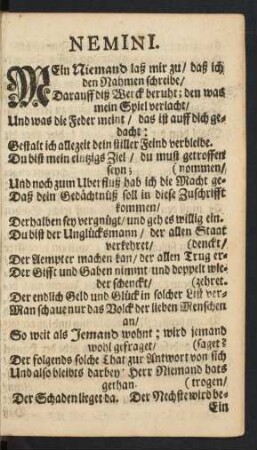 NEMINI.
MEin Niemand laß mir zu/ daß ich
den Nahmen schreibe/
Darauff diß Werck beruht; den was
mein Spiel verlacht/
Und was die Feder meint/ das ist auff dich ge-
dacht:
Gestalt ich allezeit dein stiller Feind verbleibe.
Du bist mein eintzigs Ziel/ du must getroffen
seyn; (nommen/
Und noch zum Uberfluß hab ich die Macht ge-
Daß dein Gedächtnüß soll in diese Zuschrifft
kommen/
Derhalben sey vergnügt/ und geh es willig ein.
Du bist der Unglücksmann/ der allen Staat
verkehret/ (denckt/
Der Aempter machen kan/ der allen Trug er-
Der Gifft und Gaben nimmt und doppelt wie-
der schenckt/ (zehret.
Der endlich Geld und Glück in solcher Lust ver-
Man schaue nur das Volck der lieben Menschen
an/
So weit als Jemand wohnt; wird jemand
wohl gefraget/ (saget?
Der folgends solche That zur Antwort von sich
Und also bleibts darbey: Herr Niemand hats
gethan. (trogen/
Der Schaden lieget da. Der Nechste wird be-
Ein